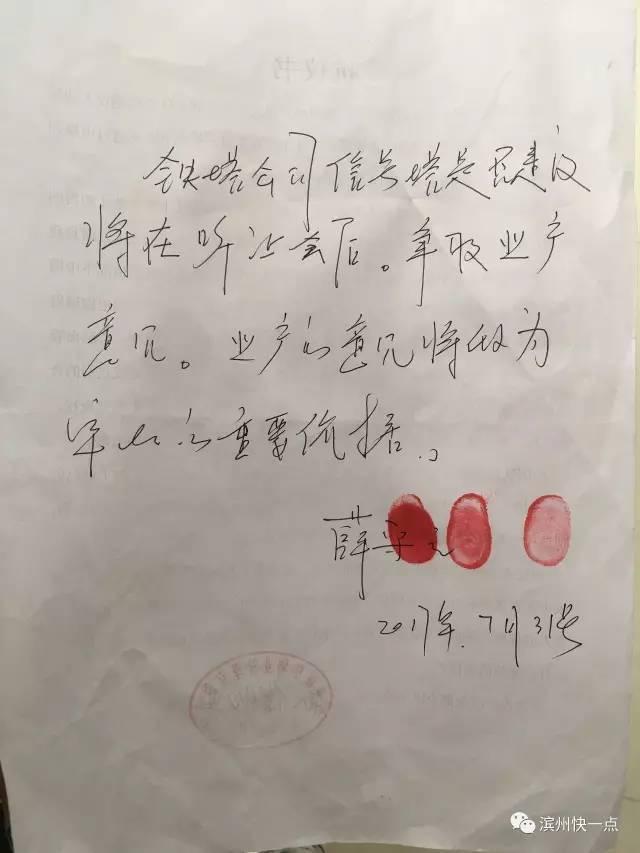 铁塔公司信号塔是否建设
将在听证会后。争取业户
意见。业户的意见将做为
的重要依据。
薛守
2017年.7月31号
滨州快一点